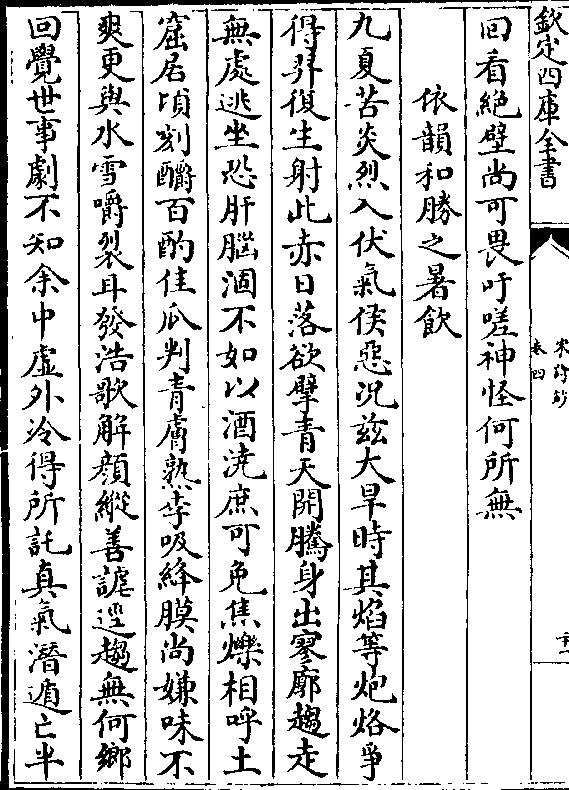 欽定四庫全書
宋詩鈔
卷四
回看絶壁尚可畏吁嗟神怪何所無
依韻和勝之暑飲
九夏苦炎烈入伏氣侯惡况兹大旱時其焰等炮烙爭
得羿復生射此赤日落欲擘青天開騰身出寥廓趨走
無處逃坐恐肝腦涸不如以酒澆庶可免焦爍相呼土
窟居頃刻釂百酌佳瓜判青膚熟李吸絳膜尚嫌味不
爽更與水雪嚼裂耳發浩歌解顔縱善謔逕趨無何鄉
回覺世事劇不知余中虚外冷得所託真氣潛遁亡半